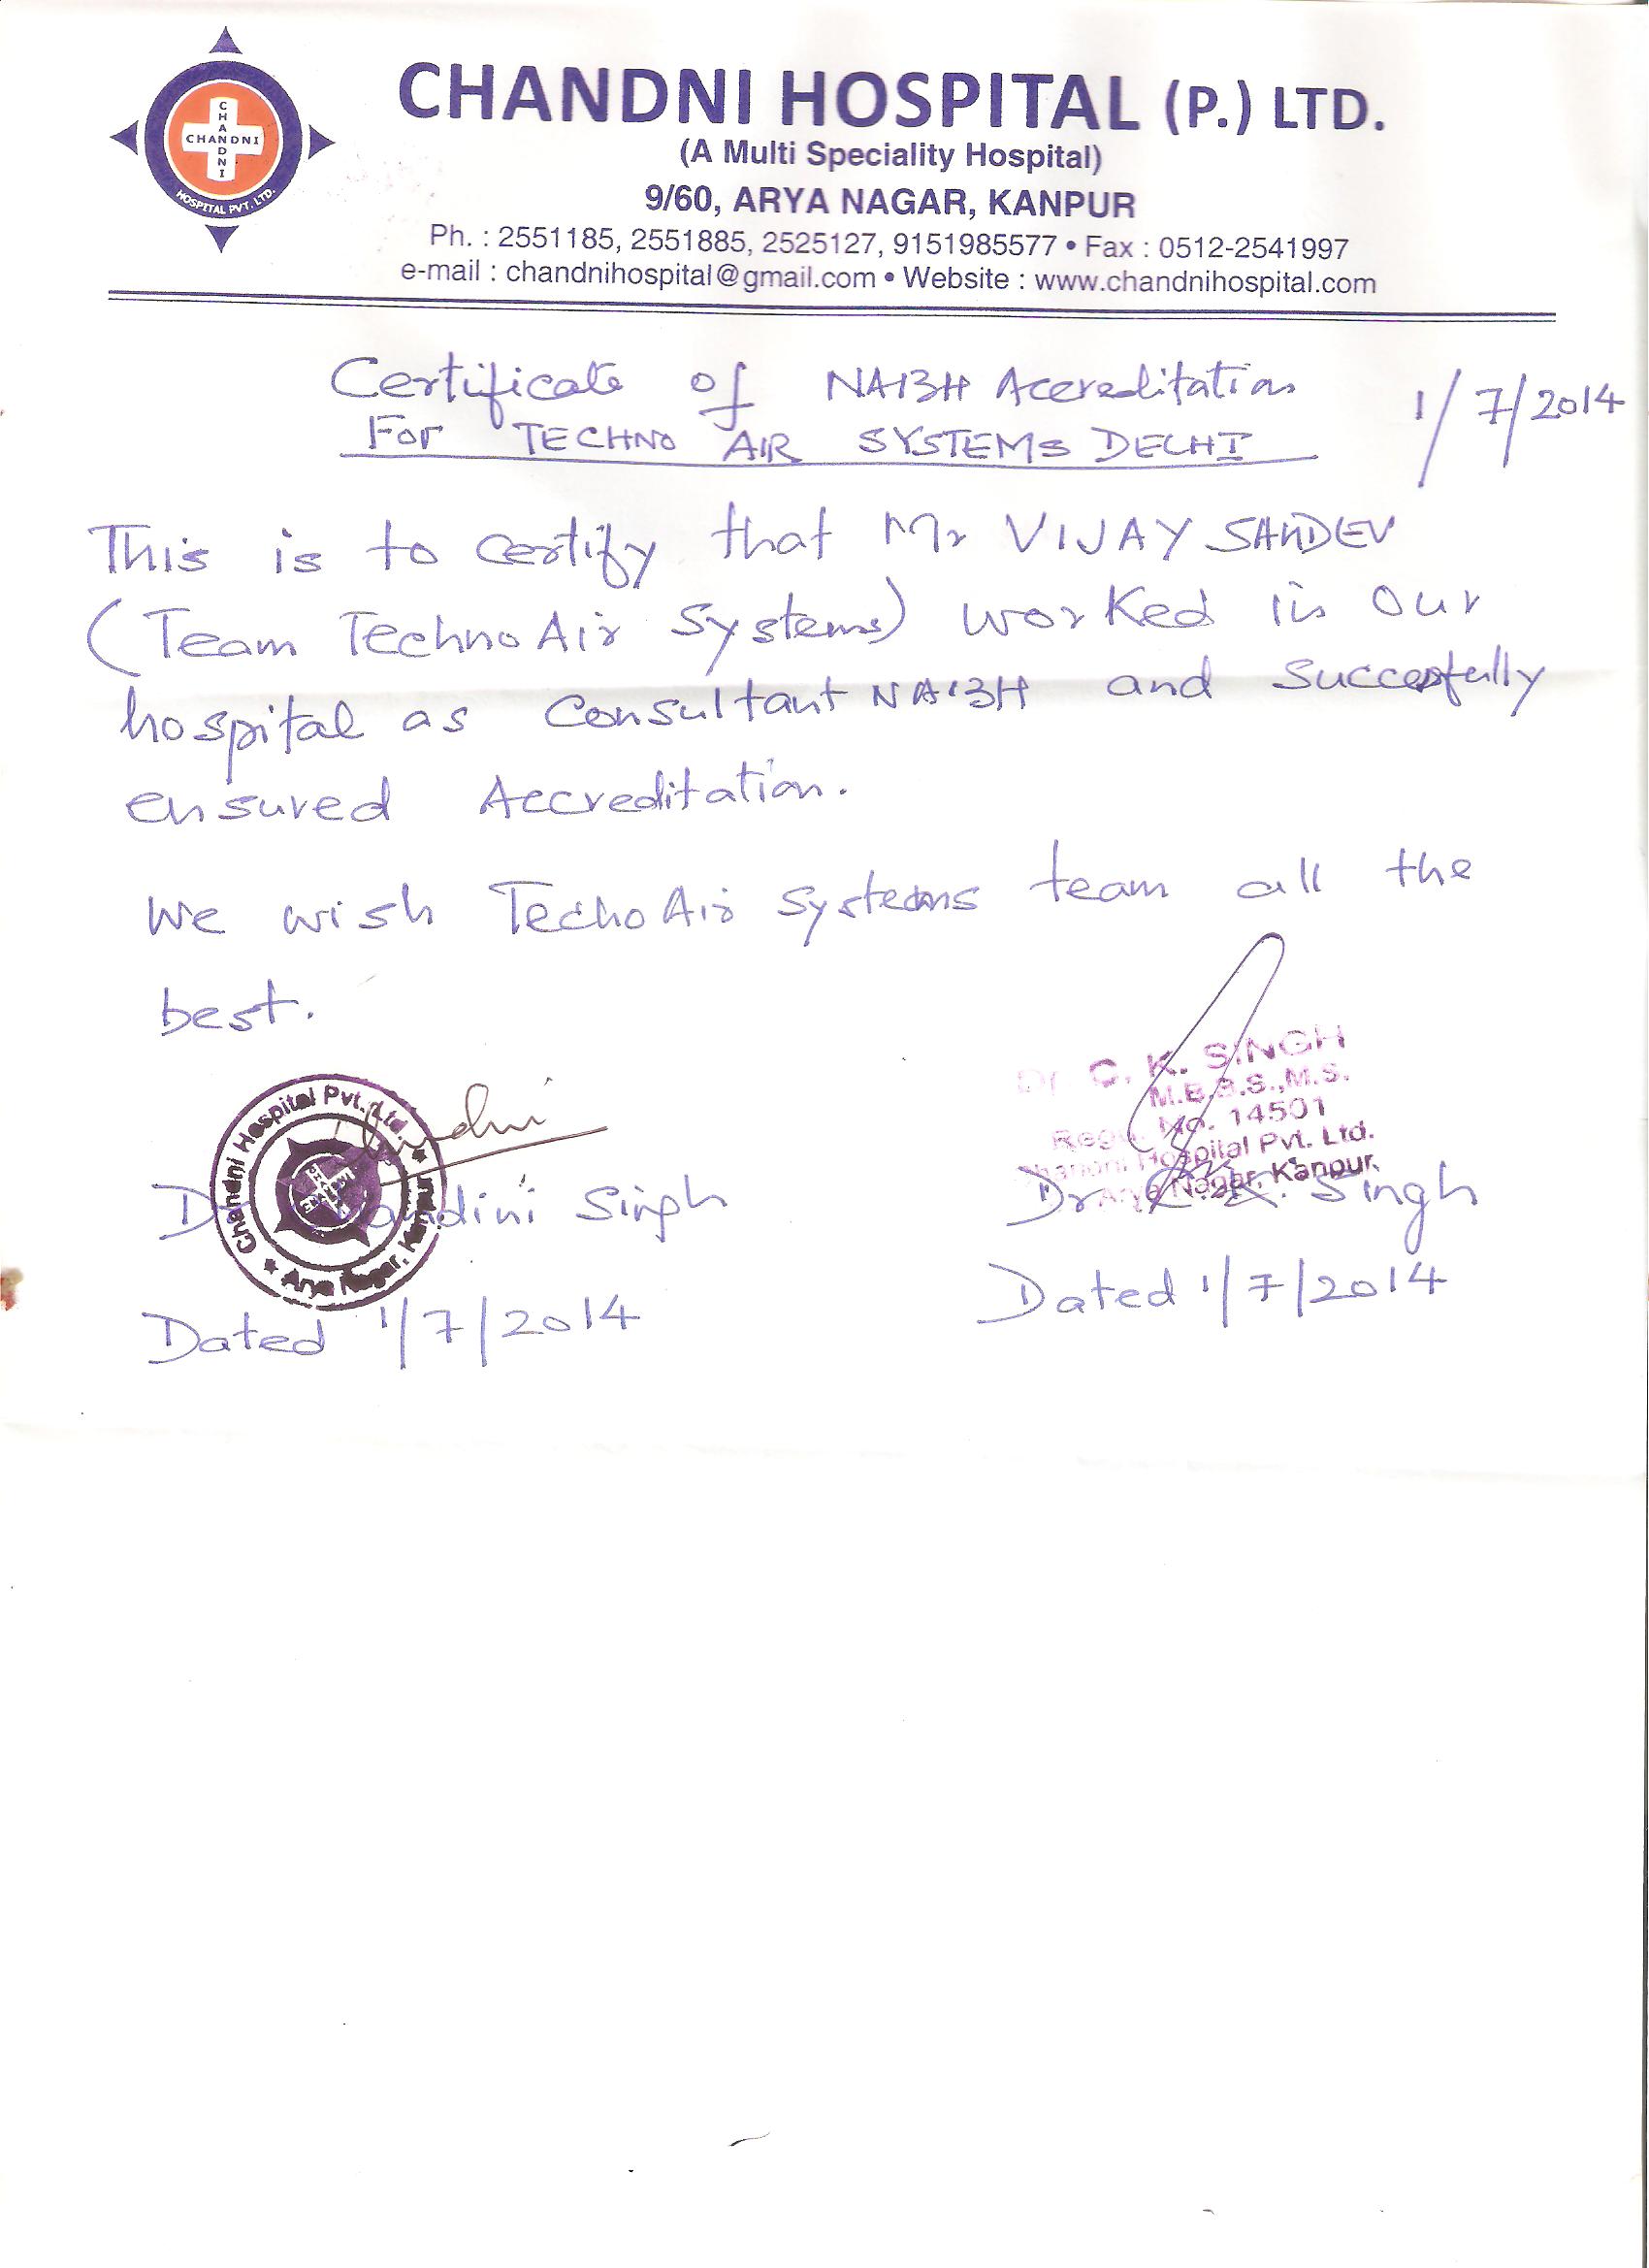 CHANDNI
CHANDNI
HOSPITAL PVT. LTD.
CHANDNI HOSPITAL (P.) LTD.
(A Multi Speciality Hospital)
9/60, ARYA NAGAR, KANPUR
Ph. : 2551185, 2551885, 2525127, 9151985577 • Fax : 0512-2541997
e-mail : chandnihospital@gmail.com • Website : www.chandnihospital.com
Certificate of NABH Accreditation
1/7/2014
For TECHNO AIR SYSTEMS DELHI
This is to certify that Mr VIJAY SAHDEV
(Team Techno Air Systems) worked in our
hospital as Consultant NABH and Successfully
ensured Accreditation.
We wish Techo Air Systems team all the
best.
Chandni Hospital Pvt. Ltd.
Arya Nagar, Kanpur
Singh
Dated 1/7/2014
Dr. C. K. SINGH
M.B.B.S., M.S.
Regd. No. 14501
Chandni Hospital Pvt. Ltd.
Arya Nagar, Kanpur.
Dr C.K. Singh
Dated 1/7/2014